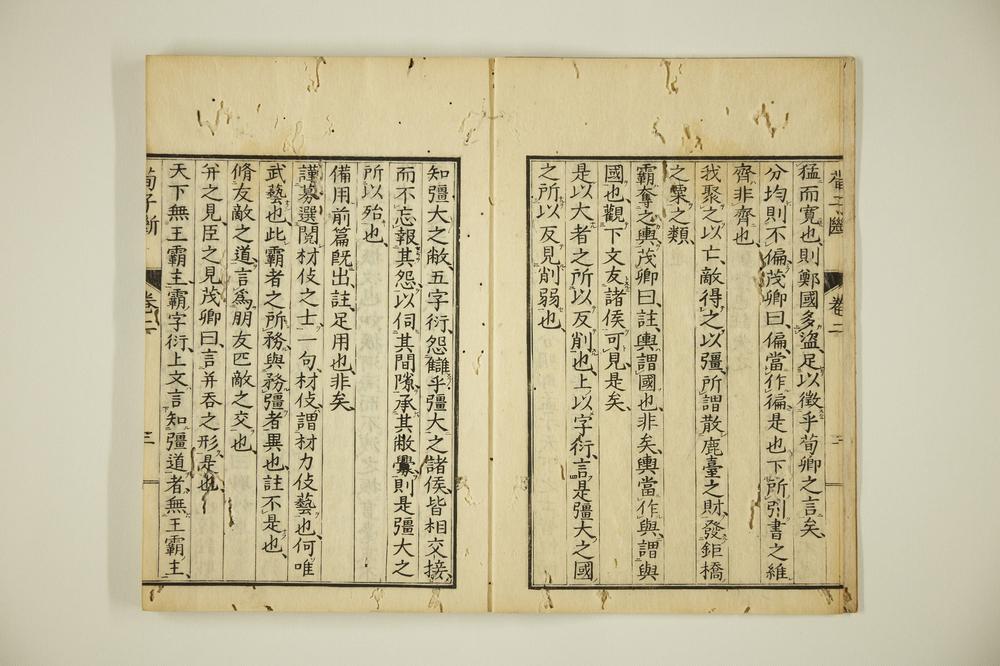 猛而寬也、則鄭國多盜、足以徵乎荀卿之言矣、
分均則不偏、茂卿曰、偏當作徧、是也、下所引書之維
齊非齊也、
我聚之以亡、敵得之以彊、所謂散鹿臺之財、發鉅橋
之粟之類、
霸奪之輿、茂卿曰、註、輿謂國也、非矣、輿當作與、謂與
國也、觀下文友諸侯、可見是矣、
是以大者之所以反削也、上以字衍、言是彊大之國
之所以反見削弱也、
知彊大之敝、五字衍、怨讎乎彊大之諸侯、皆相交接、
而不忘報其怨、以伺其間隙、承其敝釁、則是彊大之
所以殆也、
備用前篇既出、註足用也、非矣、
謹募選閱材伎之士一句、材伎謂材力伎藝也、何唯
武藝也、此霸者之所務、與務彊者異也、註不是也、
脩友敵之道、言爲朋友匹敵之交也、
并之見、臣之見、茂卿曰、言并吞之形、是也、
天下無王霸主、霸字衍、上文言知彊道者、無王霸主、
荀子斷
卷二
三
卷二